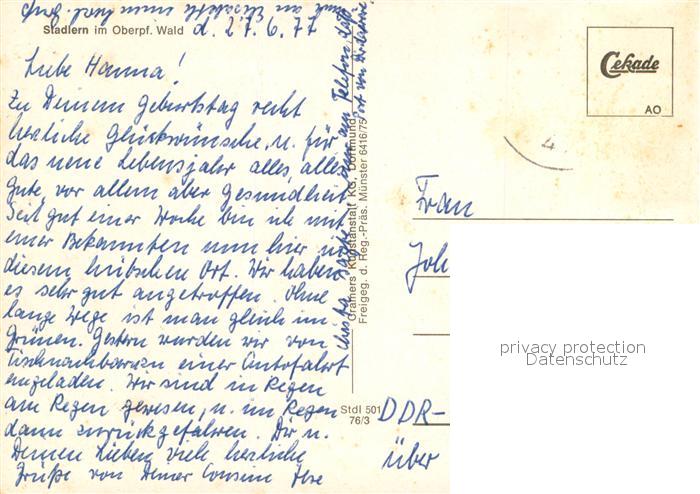 Stadlern im Oberpf. Wald d. 27.6.77
Liebe Hanna!
Zu Deinem Geburtstag recht
herzliche Glückwünsche, u. für
das neue Lebensjahr alles, alles
Gute, vor allem aber Gesundheit.
Seit gut einer Woche bin ich mit
einer Bekannten nun hier in
diesem hübschen Ort. Wir haben
es sehr gut angetroffen. Ohne
lange Wege ist man gleich im
Grünen. Gestern wurden wir von
Tischnachbarn einer Autofahrt
eingeladen. Wir sind in Regen
am Regen gewesen, u. im Regen
dann zurückgefahren. Dir u.
Deinen Lieben viele herzliche
Grüße von Deiner Cousine Ilse
am Telefon
Cramers Kunstanstalt KG, Dortmund
Freigeg. d. Reg.-Präs. Münster 6416/75
Stdl 501
76/3
Cekade
AO
Frau
Joh
DDR-
über
privacy protection
Datenschutz